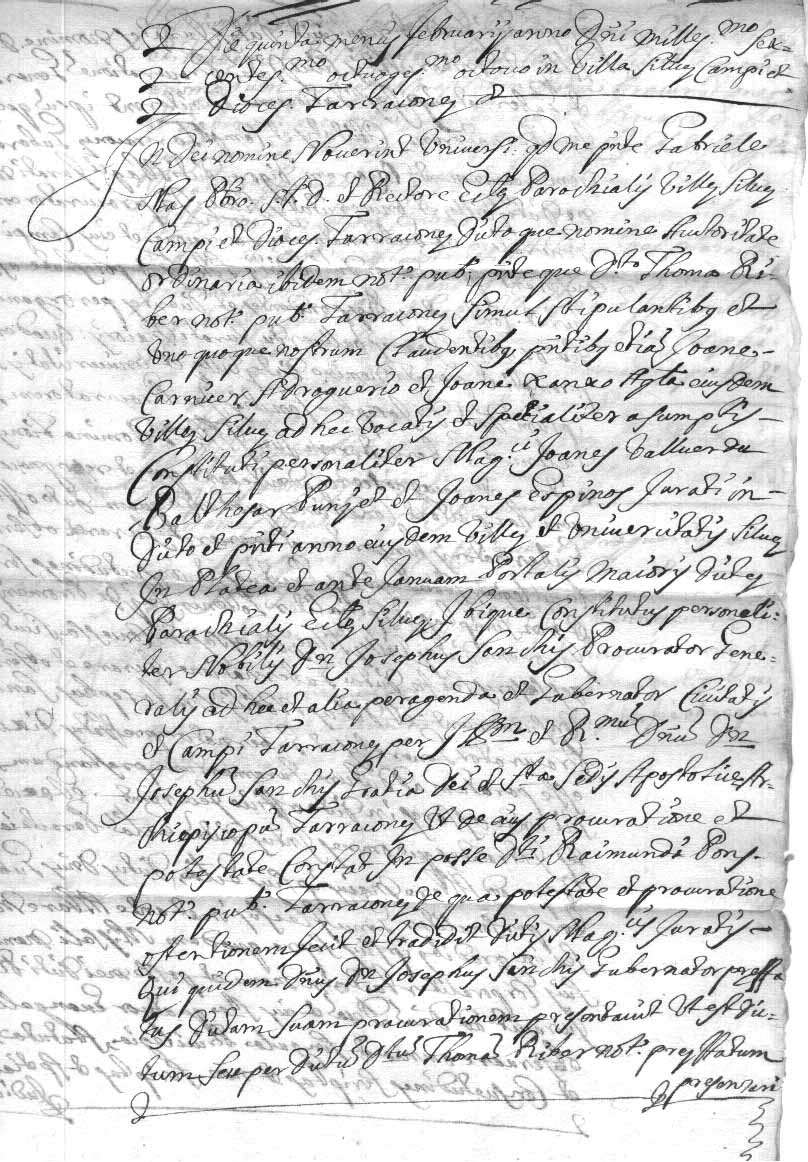 Die quinta mensis februarij anno Dni Milles.mo sex-
centes.mo octuages.mo octavo in Villa Silvę Campi et
Dioces. Tarracoñę &
In Dei nomine Noverint Universi: qd me pnte Gabriele
Mas Pbro. S.T.D. et Rectore Ecclę Parochialis Villę Silvę
Campi et Dioces. Tarraconę dictoque nomine Authoritate
ordinaria ibidem not.o pub.co pnteque D.to Thoma Ri-
ber not.o pub.co Tarraconę simul stipulantibq et
unoquoque nostrum Claudentibq, pntibq etiā Joane
Carnicer Adroguerio et Joane Xanxo Agla eiusdem
Villę Silvę ad hec vocatis et specialiter asumptis
Constituti personaliter Mag.ci Joanes Vallverdu
Balthesar Punyet et Joanes Espinos Jurati in
dicto et pnti anno eiusdem Villę et Universitatis Silvę
In Platea et ante Januam Portalis Maioris dictę
Parochialis Ecclę Silvę, Ibique Constitutus personali-
ter Nobilis Dn Josephus Sanchis Procurator Gene-
ralis ad hec et alia peragenda et Gubernator Civitatis
et Campi Tarraconę per Illm et R.mū Dnū Dn
Josephū Sanchis Gratia Dei et Stæ Sedis Apostolicę Ar-
chiepiscopū Tarraconę Ut de eius procuratione et
potestate Constat In posse D.ti Raimundi Pons
not.i pub.ci Tarraconę de qua potestate et procuratione
ostentionem fecit et tradidit dictis Mag.cis Juratis
Qui quidem Dnus Dn Josephus Sanchis Gubernator pręffa
tus dictam suam procurationem presentavit Ut est dic-
tum seu per dictū D.tū Thomā Riber not.m pręffatum
presentari